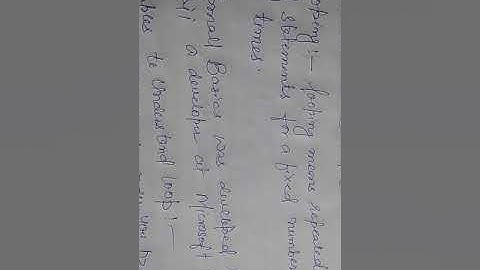 oping:- looping means repeated
statements for a fixed number
times.
mall Basics was developed
a develope at Microsoft
ples to Understand loop:-